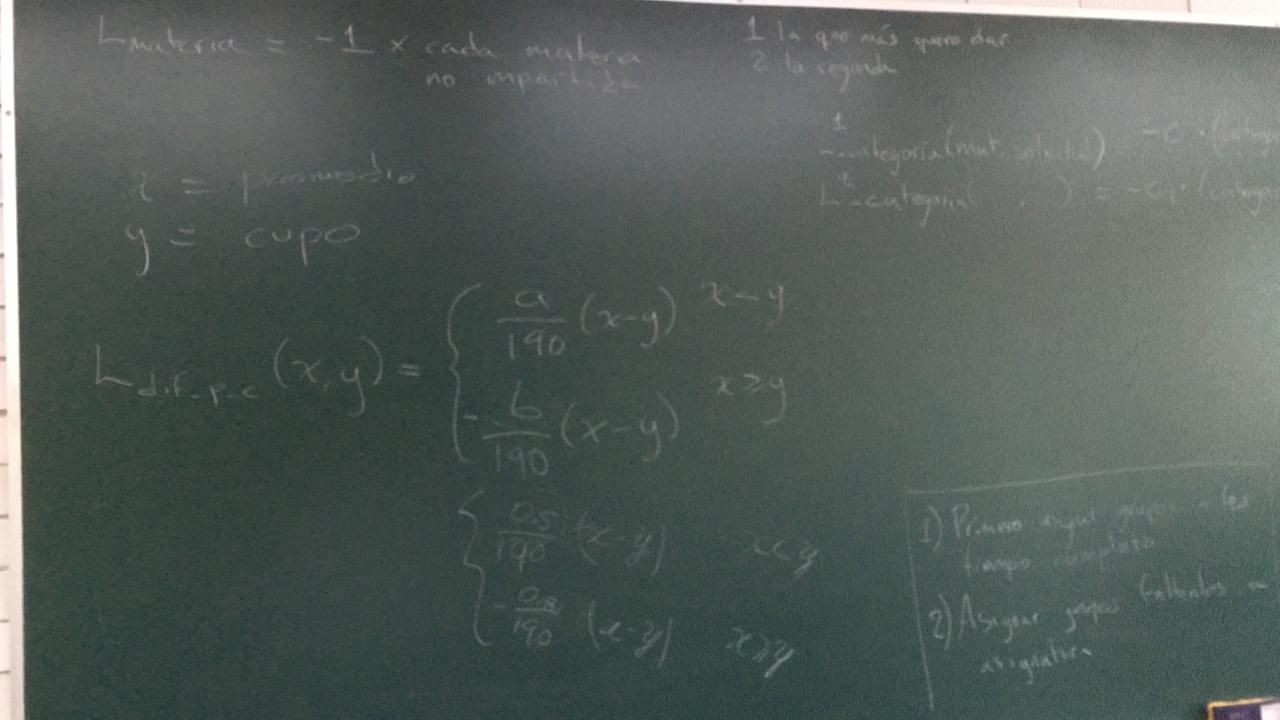 L materia = -1 × cada materia
no impartida
1 la que más quiere dar
2 la segunda
1
categoría(mat. solicitud) = -C · (catego
2
L -categoria( , ) = -C4 · (
x = promedio
y = cupo
L dif-p-c (x,y) = { a/190 (x-y) x < y
- b/190 (x-y) x ≥ y
{ 0.5/190 (x-y) x < y
- 0.8/190 (x-y) x ≥ y
1) Primero asignar grupos a los
tiempo completo
2) Asignar grupos faltantes a
asignatura